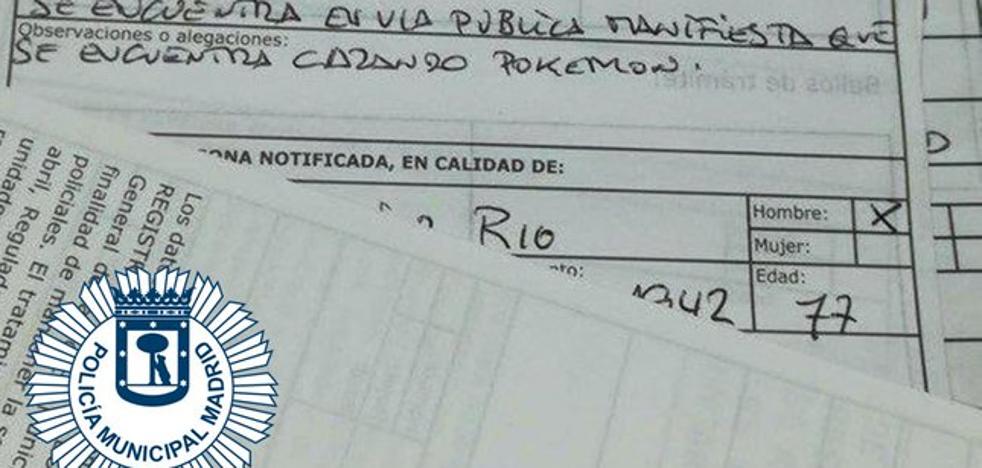 SE ENCUENTRA EN VIA PUBLICA MANIFIESTA QUE
Observaciones o alegaciones:
SE ENCUENTRA CAZANDO POKEMON.
Sellos de trámite:
ONA NOTIFICADA, EN CALIDAD DE:
Hombre: X
RIO
Mujer:
Edad:
42
77
D
Los dat
REGISTR
General d
finalidad de
policiales. El tratami
abril, Regulad
unidades
POLICÍA MUNICIPAL MADRID